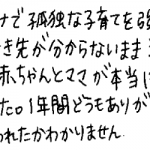 けで孤独な子育てを強
き先が分からないまま
赤ちゃんとママが本当に
た。1年間どうもありが
われたかわかりません.